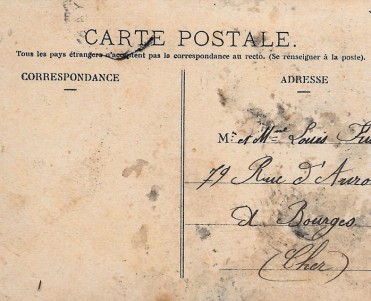 CARTE POSTALE.
Tous les pays étrangers n'acceptent pas la correspondance au recto. (Se renseigner à la poste).
CORRESPONDANCE
ADRESSE
Mr et Mme Louis
79 Rue d'
à Bourges
(Cher)